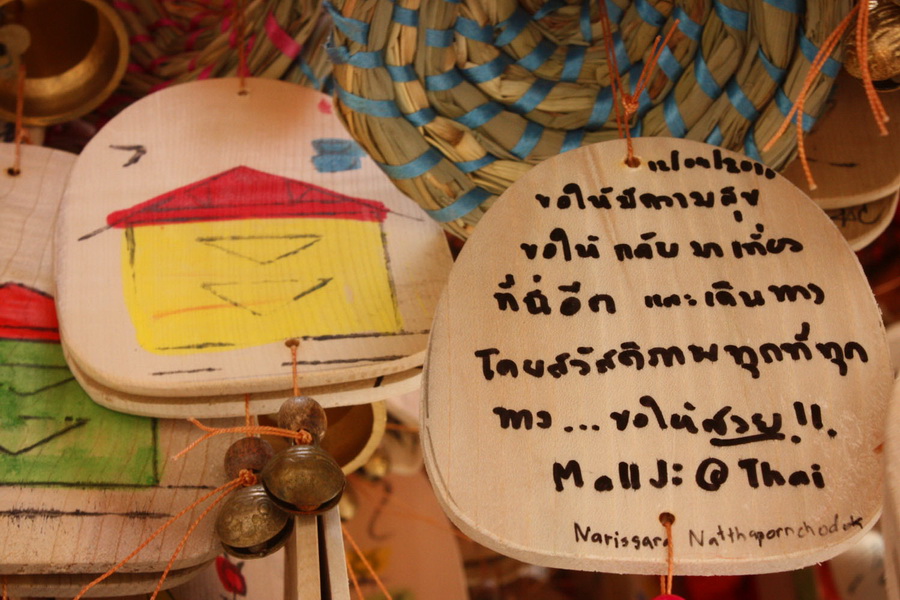 ขอให้มีความสุข
ขอให้ กลับ มา เที่ยว
ที่นี่อีก และ เดินทาง
โดยสวัสดิภาพ ทุกที่ ทุก
ทาง ... ขอให้สวย !!
Mall Ji @ Thai
Narissara Natthapornchod